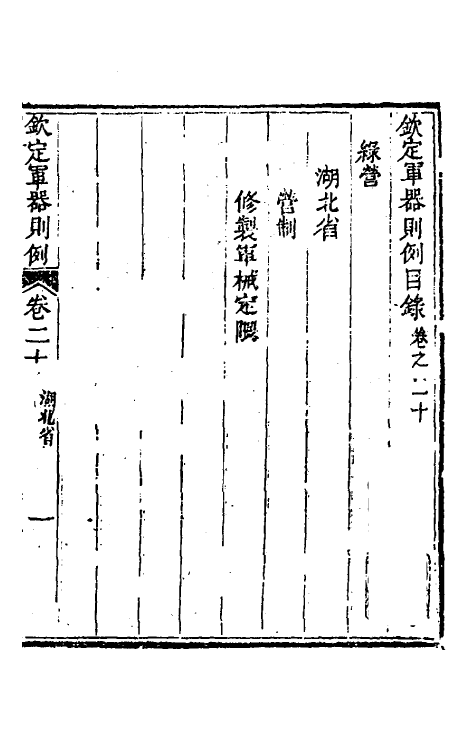 欽定軍器則例目錄卷之二十
綠營
湖北省
營制
修製軍械定限
欽定軍器則例
卷二十
湖北省
一